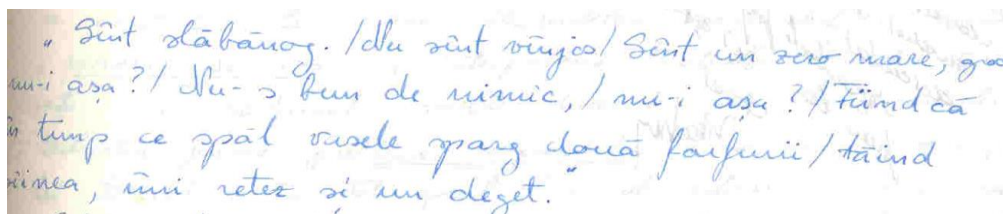 „Sînt slăbănog. / Nu sînt vînjos / Sînt un zero mare, gro
nu-i așa? / Nu-s bun de nimic, / nu-i așa? / Fiindcă
în timp ce spăl vasele sparg două farfurii / tăind
pîinea, îmi retez și un deget.”